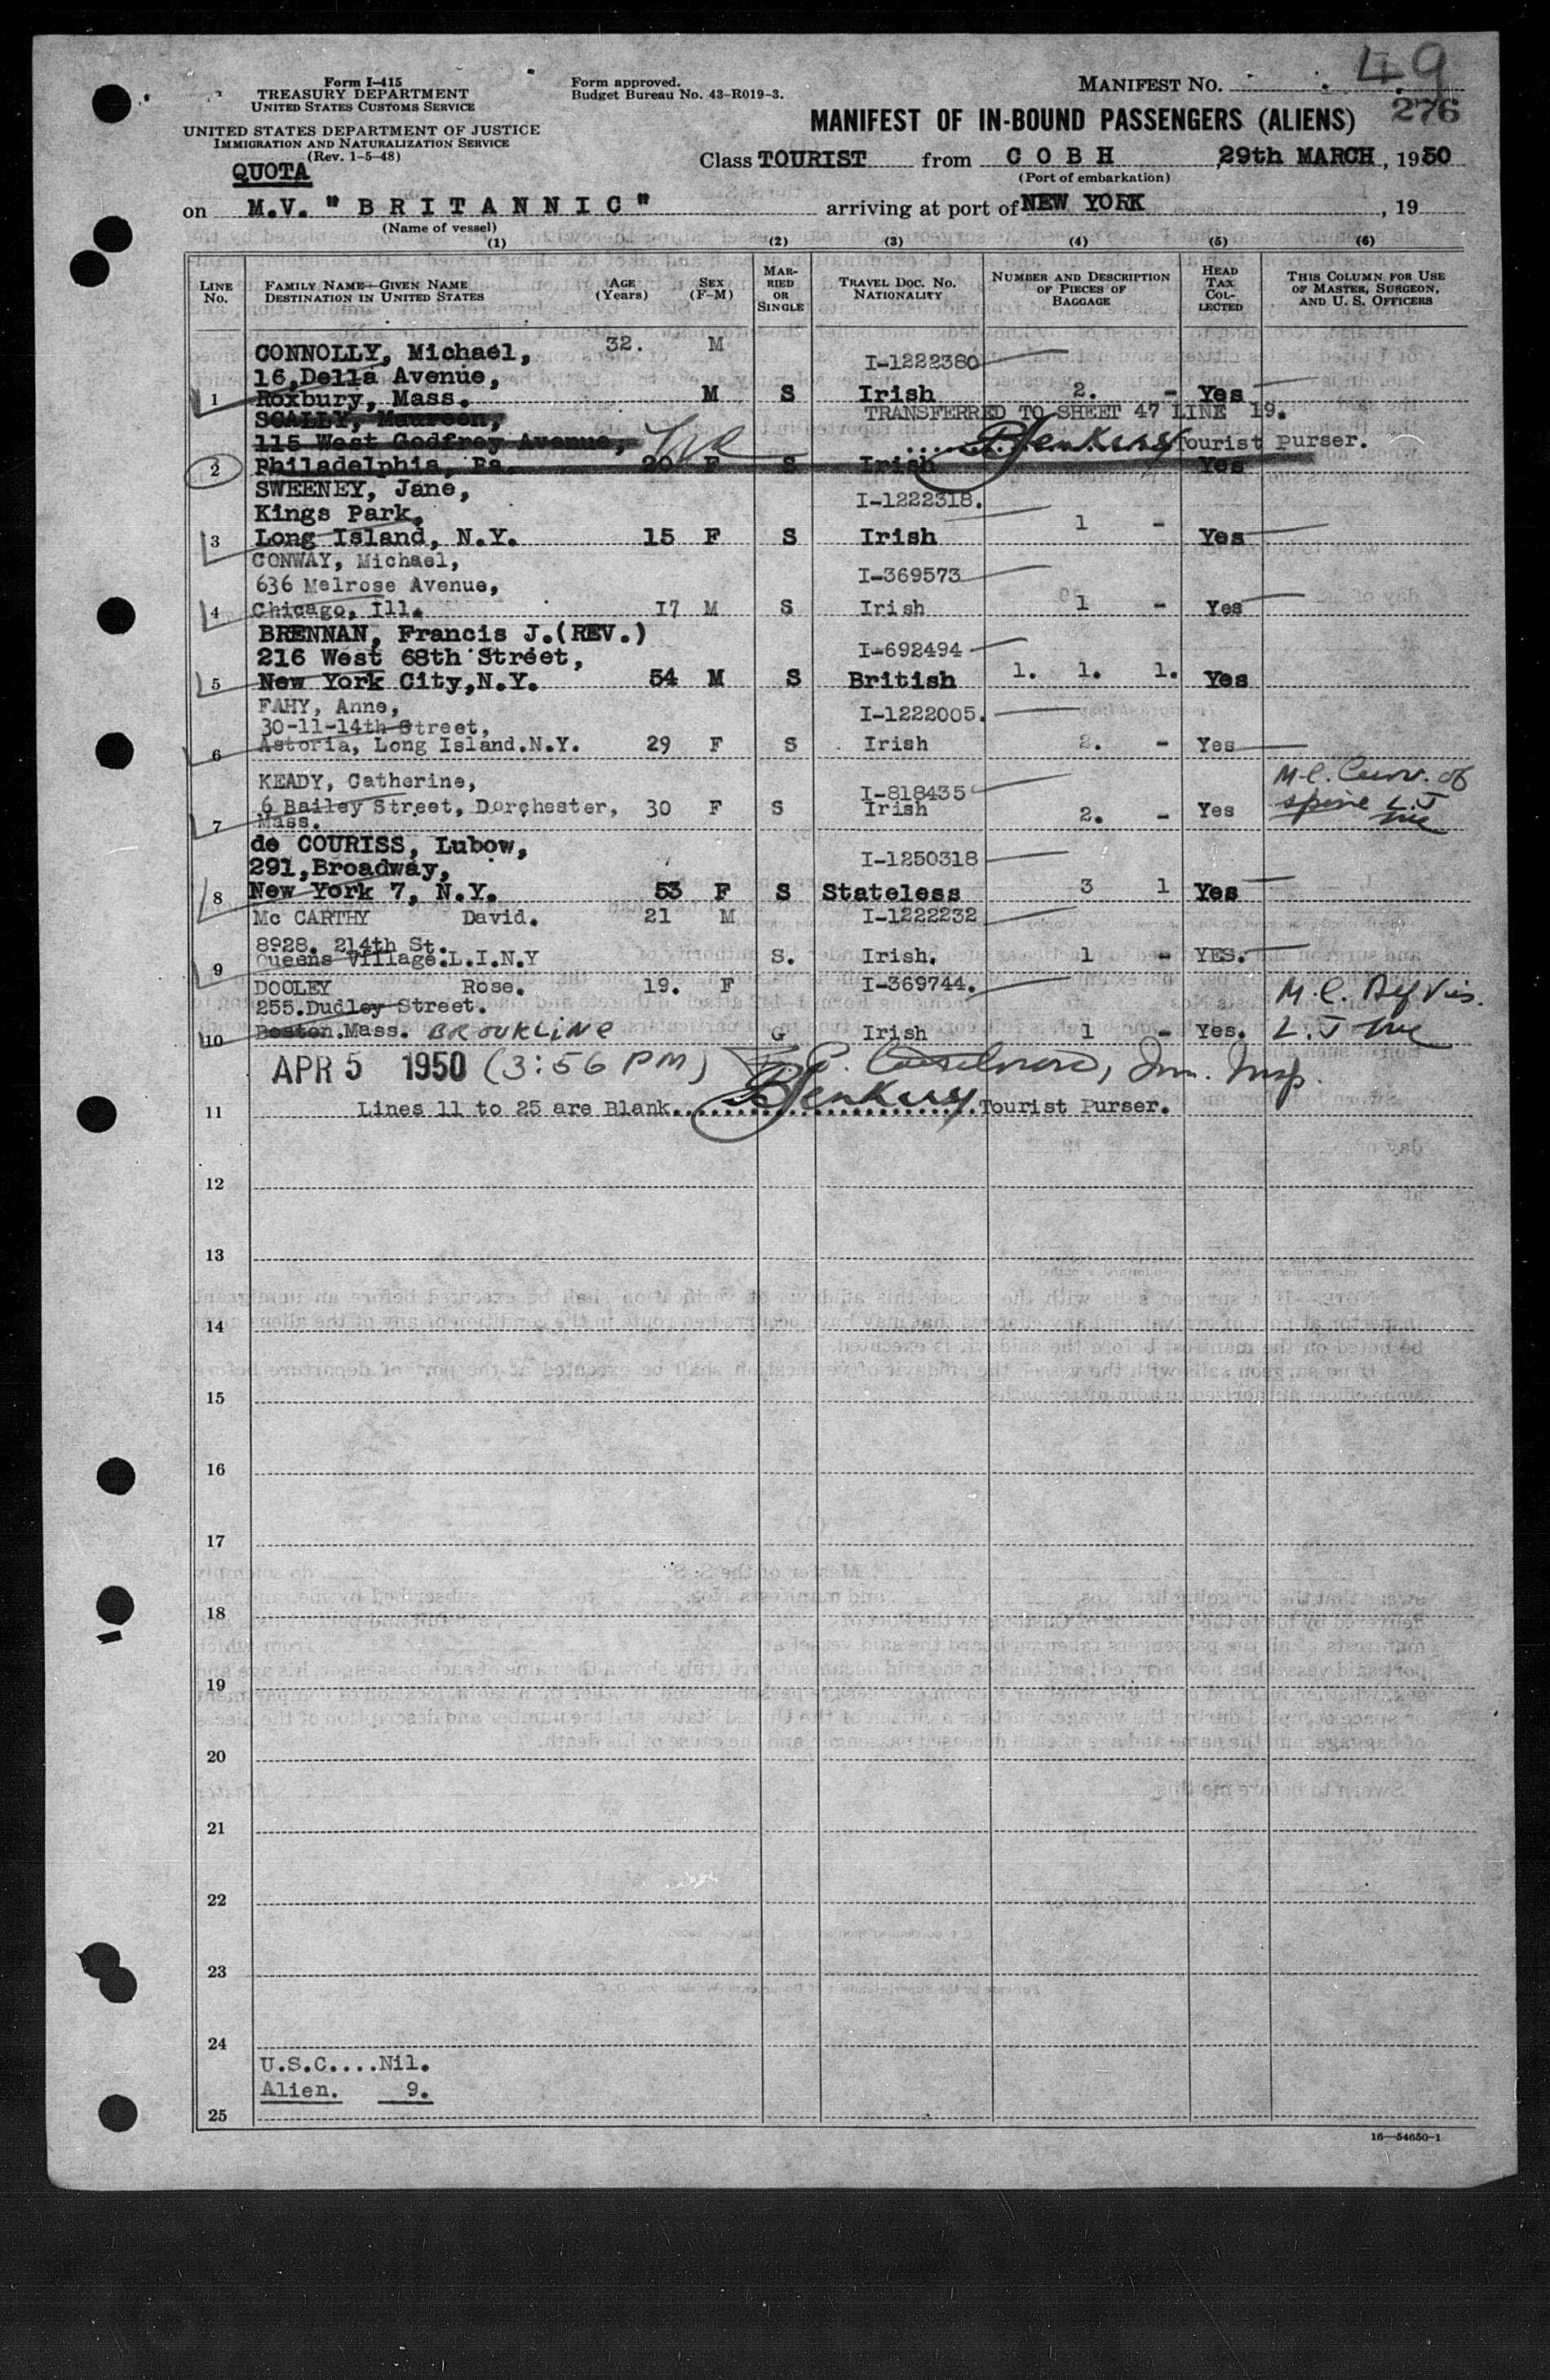 49
276
Form I-415
TREASURY DEPARTMENT
UNITED STATES CUSTOMS SERVICE
UNITED STATES DEPARTMENT OF JUSTICE
IMMIGRATION AND NATURALIZATION SERVICE
(Rev. 1-5-48)
Form approved.
Budget Bureau No. 43-R019-3.
MANIFEST NO.
MANIFEST OF IN-BOUND PASSENGERS (ALIENS)
QUOTA
Class TOURIST from COBH 29th MARCH, 1950
(Port of embarkation)
on M.V. "BRITANNIC" arriving at port of NEW YORK, 19
(Name of vessel)
(1) (2) (3) (4) (5) (6)
LINE No. FAMILY NAME—GIVEN NAME DESTINATION IN UNITED STATES AGE (Years) SEX (F-M) MARRIED OR SINGLE TRAVEL DOC. NO. NATIONALITY NUMBER AND DESCRIPTION OF PIECES OF BAGGAGE HEAD TAX COLLECTED THIS COLUMN FOR USE OF MASTER, SURGEON, AND U. S. OFFICERS
CONNOLLY, Michael, 32. M I-1222380
16, Della Avenue,
1 Roxbury, Mass. M S Irish 2. - Yes
SCALLY, Maureen, TRANSFERRED TO SHEET 47 LINE 19.
115 West Godfrey Avenue, Tourist Purser.
2 Philadelphia, Pa. 20 F S Irish Yes
SWEENEY, Jane, I-1222318.
Kings Park,
3 Long Island, N.Y. 15 F S Irish 1 - Yes
CONWAY, Michael, I-369573
636 Melrose Avenue,
4 Chicago, Ill. 17 M S Irish 1 - Yes
BRENNAN, Francis J.(REV.) I-692494
216 West 68th Street,
5 New York City,N.Y. 54 M S British 1. 1. 1. Yes
FAHY, Anne, I-1222005.
30-11-14th Street,
6 Astoria, Long Island.N.Y. 29 F S Irish 2. - Yes
KEADY, Catherine, I-818435 M.C. Curv. of
6 Bailey Street, Dorchester, 30 F S Irish 2. - Yes spine L.J
7 Mass.
de COURISS, Lubow, I-1250318
291, Broadway,
8 New York 7, N.Y. 53 F S Stateless 3 1 Yes
Mc CARTHY David. 21 M I-1222232
8928. 214th St.
9 Queens Village.L.I.N.Y S. Irish. 1 - YES.
DOOLEY Rose. 19. F I-369744. M.C. Def Vis.
255.Dudley Street.
10 Boston.Mass. BROOKLINE G Irish 1 - Yes. L.J
APR 5 1950 (3:56 PM) Imm. Insp.
11 Lines 11 to 25 are Blank Tourist Purser.
12
13
14
15
16
17
18
19
20
21
22
23
24
U.S.C....Nil.
Alien. 9.
25
16—54650-1